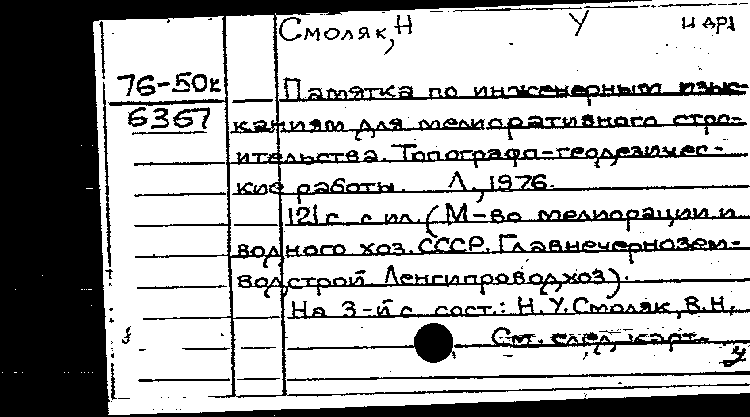 Смоляк, Н У
76-50к Памятка по инженерным изыс-
6367 каниям для мелиоративного стро-
ительства. Топографо-геодезичес-
кие работы. Л., 1976.
121 с. с ил. (М-во мелиорации и
водного хоз. СССР. Главнечернозем-
водстрой Ленгипроводхоз).
На 3-й с. сост.: Н.У. Смоляк, В.Н.
См. след. карт.